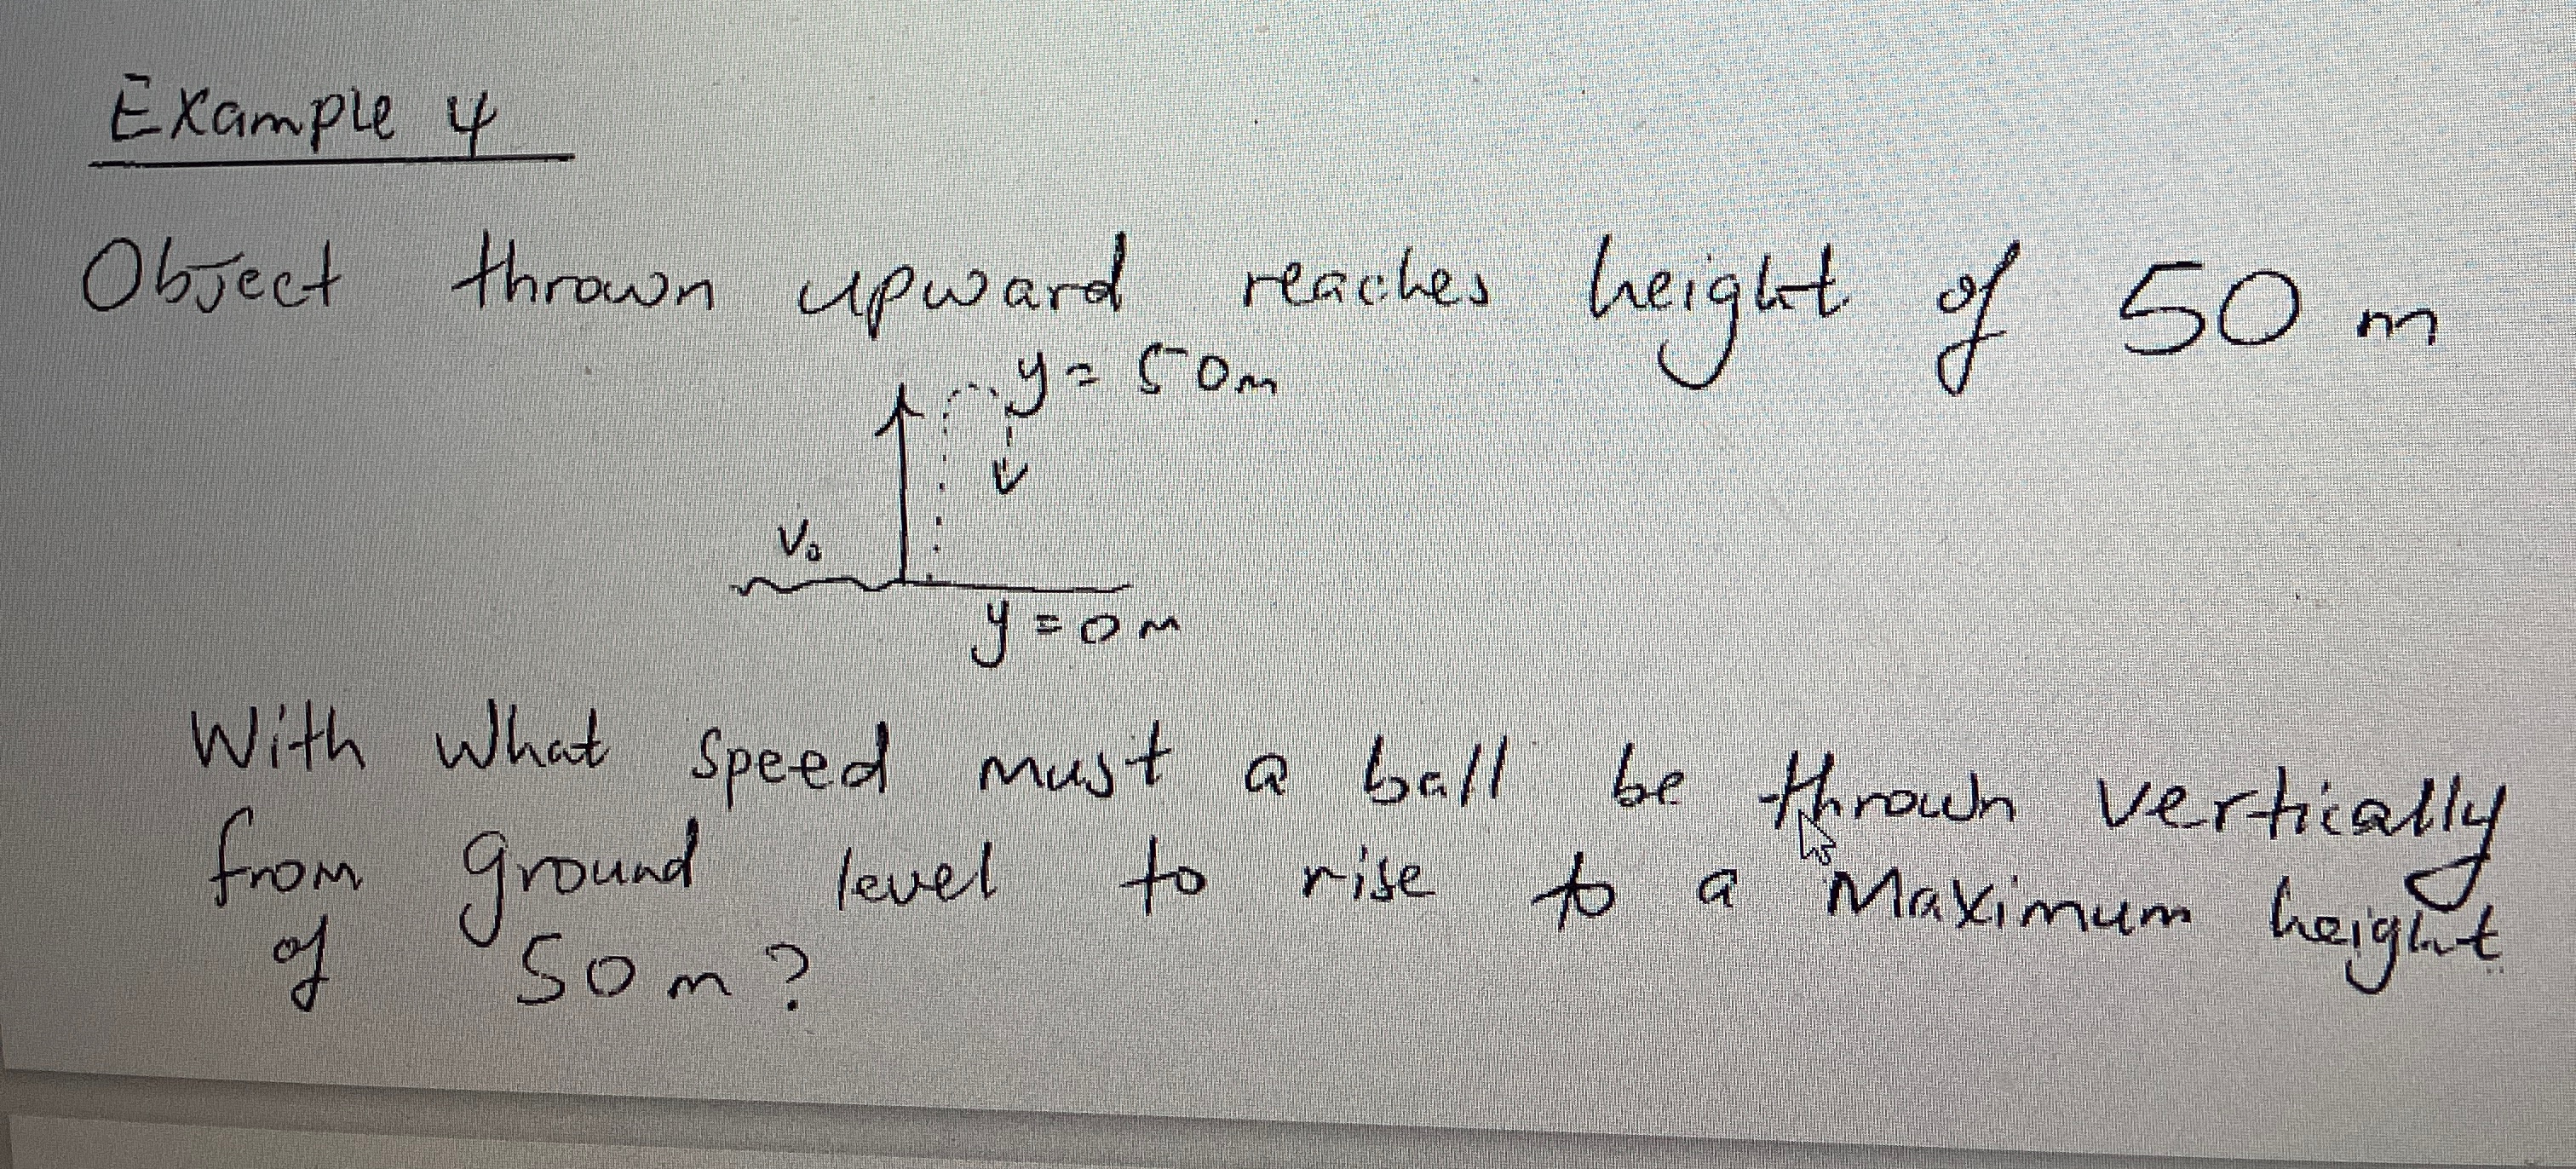 Example 4
Object thrown upward reaches height of 50 m
y = 50m
V₀
y = 0 m
With what speed must a ball be thrown vertically
from ground level to rise to a Maximum height
of 50 m?